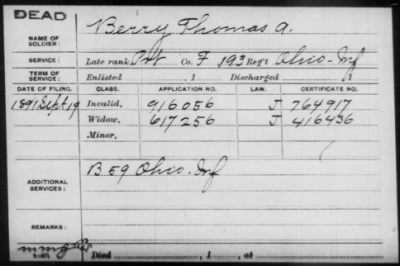 DEAD
NAME OF SOLDIER: Berry Thomas A.
SERVICE: Late rank Pvt Co. F 193 Reg't Ohio Inf
TERM OF SERVICE: Enlisted , 1 Discharged , 1
DATE OF FILING. CLASS. APPLICATION NO. CERTIFICATE NO.
1891 Sept 19 Invalid, 916056 J 764917
Widow, 617256 J 416436
Minor,
ADDITIONAL SERVICES: B 59 Ohio Inf
REMARKS:
Died , 1 , at